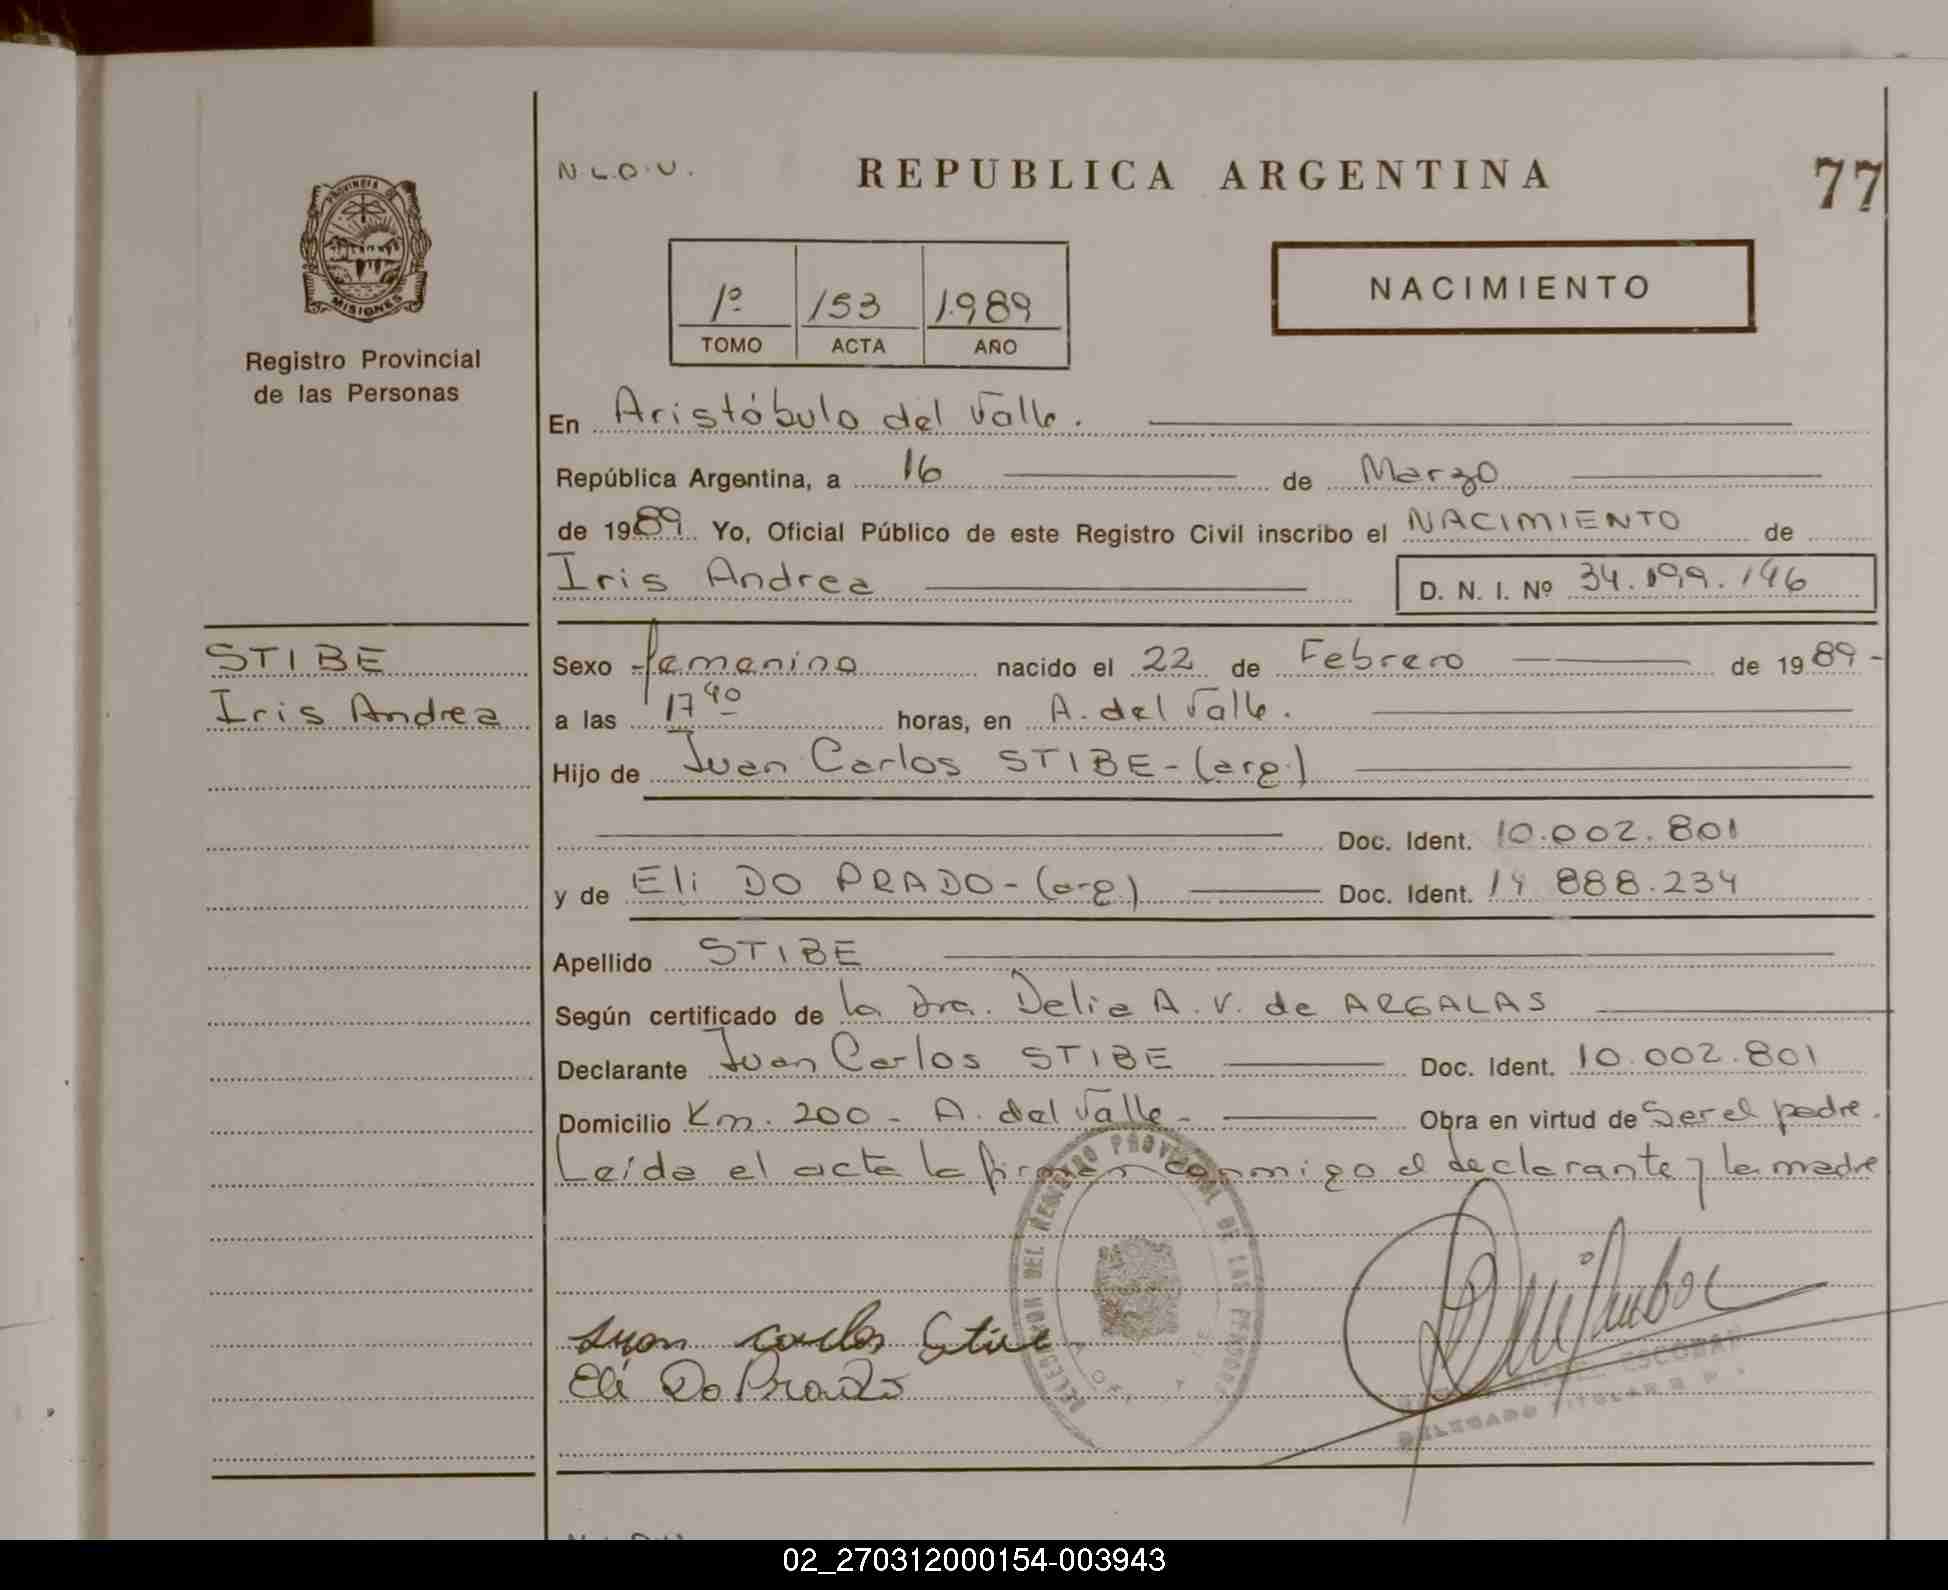 N.L.O.U.
REPUBLICA ARGENTINA
77
PROVINCIA DE
MISIONES
Registro Provincial
de las Personas
1º 153 1989
TOMO ACTA AÑO
NACIMIENTO
En Aristóbulo del Valle.
República Argentina, a 16 de Marzo
de 1989 Yo, Oficial Público de este Registro Civil inscribo el NACIMIENTO de
Iris Andrea
D. N. I. Nº 34.199.146
STIBE
Iris Andrea
Sexo femenino nacido el 22 de Febrero de 1989-
a las 17 40 horas, en A. del Valle.
Hijo de Juan Carlos STIBE-(arg.)
Doc. Ident. 10.002.801
y de Eli DO PRADO-(arg.) Doc. Ident. 14 888.234
Apellido STIBE
Según certificado de la Dra. Delia A. V. de ARGALAS
Declarante Juan Carlos STIBE Doc. Ident. 10.002.801
Domicilio Km. 200 - A. del Valle- Obra en virtud de Ser el padre.
Leída el acta la firman conmigo el declarante y la madre
DELEGACION DEL REGISTRO PROVINCIAL DE LAS PERSONAS
Juan Carlos Stive
Eli Do Prado
ESCOBAR
DELEGADO TITULAR R.P.
02_270312000154-003943